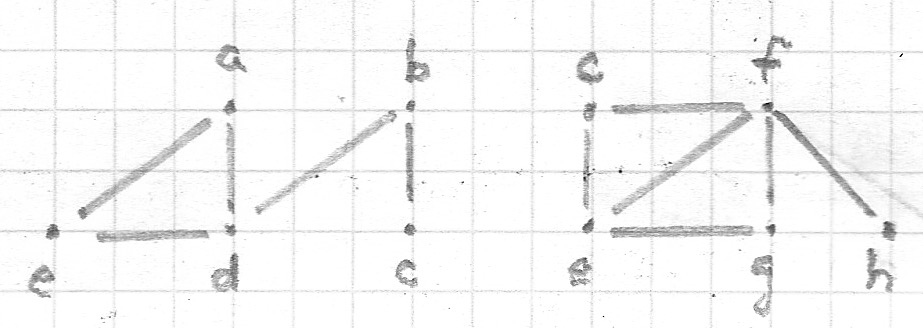 a b c f
e d c e g h